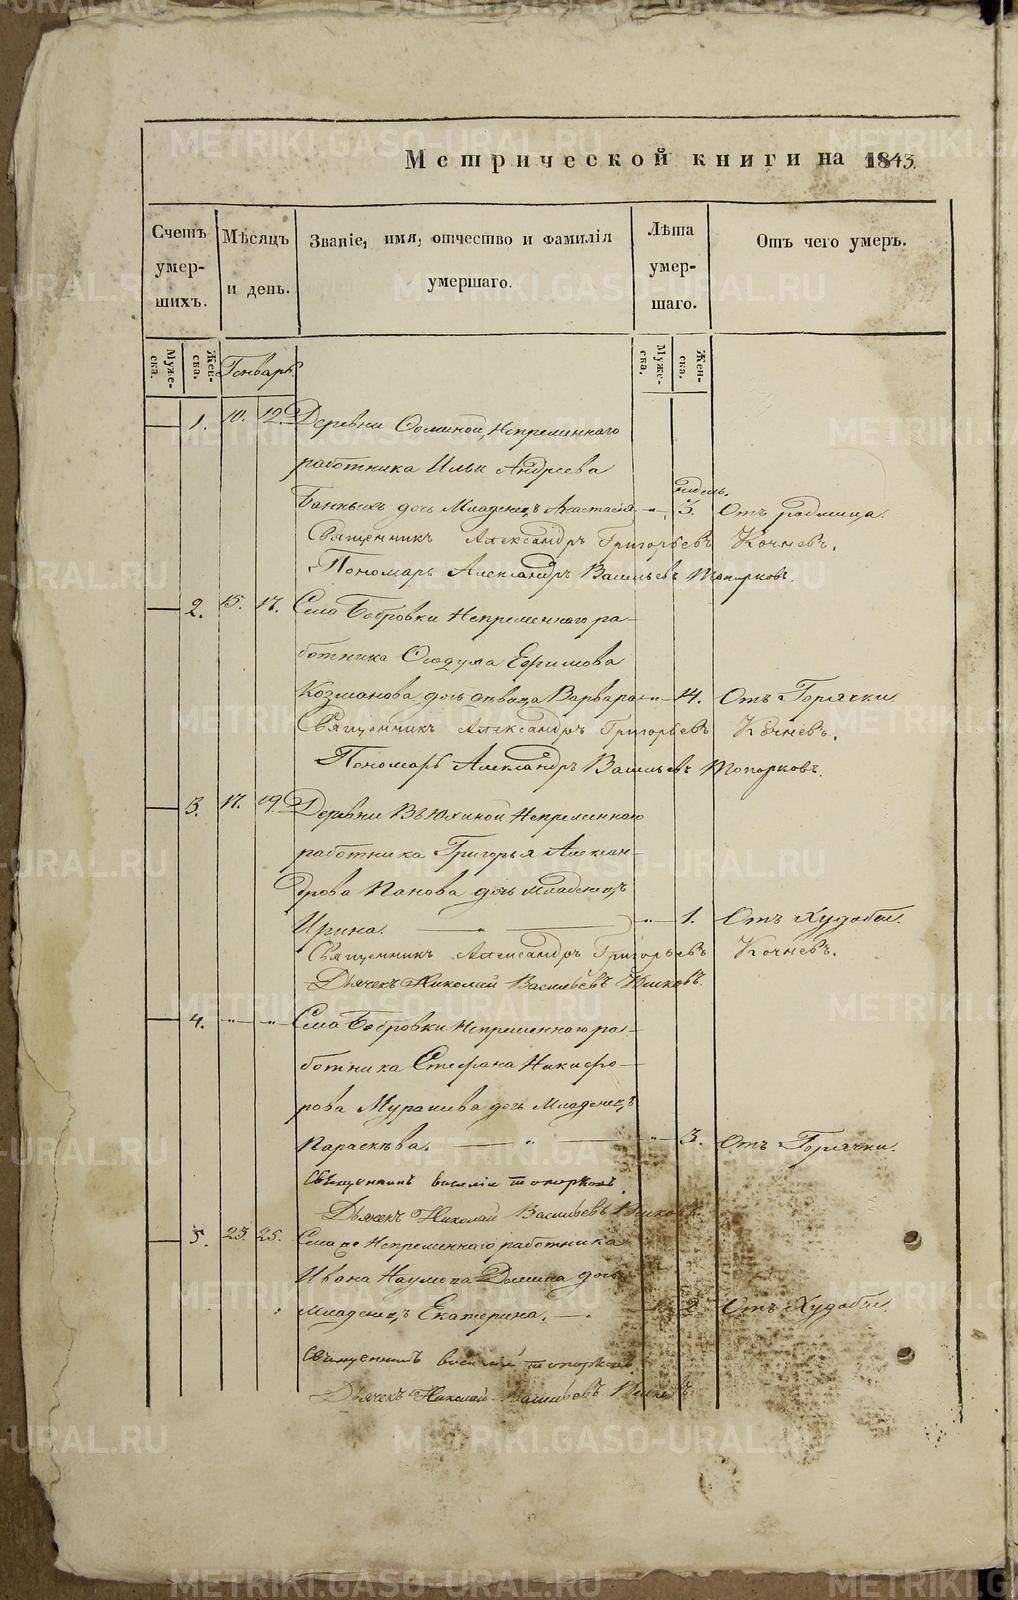 Метрической книги на 1843.
Счетъ умерших.
Мѣсяцъ и день.
Званіе, имя, отчество и фамилія умершаго.
Лѣта умершаго.
Отъ чего умеръ.
Муже-ска.
Жен-ска.
Генварь.
Муже-ска.
Жен-ска.
1. 10. 12. Деревни Непременнаго
работника Ильи Андреева
недель.
дочь Младенецъ Анастасія 3. Отъ родимца.
Священникъ Александръ Григорьевъ Кочневъ.
Пономарь Александръ Васильевъ Топорковъ.
2. 15. 17. Села Бобровки Непременнаго ра-
ботника Ефимова
Козманова дочь девица Варвара 14. Отъ Горячки.
Священникъ Александръ Григорьевъ Кочневъ.
Пономарь Александръ Васильевъ Топорковъ.
3. 17. 19. Деревни Вьюхиной Непременнаго
работника Григорья Алексан-
дрова Панова дочь младенецъ
Ирина. 1. Отъ Худобы.
Священникъ Александръ Григорьевъ Кочневъ.
Дьячекъ Николай Васильевъ
4. Села Бобровки Непременнаго ра-
ботника Стефана Никифо-
рова дочь Младенецъ
Параскѣва. 3. Отъ Горячки.
Священникъ василій топорковъ
Дьячекъ Николай Васильевъ
5. 23. 25. Села Непременнаго работника
Ивана Наумова дочь
младенецъ Екатерина. 2 Отъ Худобы.
Священникъ василій топорковъ
Дьячекъ Николай Васильевъ
METRIKI.GASO-URAL.RU